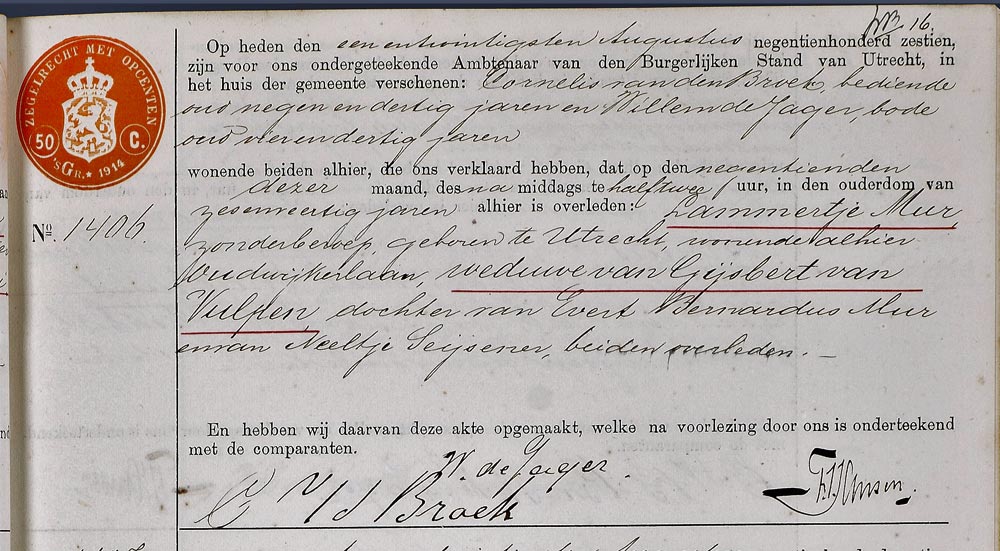 16.
ZEGELRECHT MET OPCENTEN
50 C.
'sGr. * 1914
Op heden den eenentwintigsten Augustus negentienhonderd zestien,
zijn voor ons ondergeteekende Ambtenaar van den Burgerlijken Stand van Utrecht, in
het huis der gemeente verschenen: Cornelis van den Broek, bediende
oud negen en dertig jaren en Willem de Jager, bode
oud vierendertig jaren
wonende beiden alhier, die ons verklaard hebben, dat op den negentienden
dezer maand, des na middags te halftwee uur, in den ouderdom van
zesenveertig jaren alhier is overleden: Lammertje Mur,
No. 1406.
zonder beroep, geboren te Utrecht, wonende alhier
Oudwijkerlaan, weduwe van Gijsbert van
Vulpen, dochter van Evert Bernardus Mur
en van Neeltje Seijsener, beiden overleden. —
En hebben wij daarvan deze akte opgemaakt, welke na voorlezing door ons is onderteekend
met de comparanten.
W. de Jager.
C v/d Broek